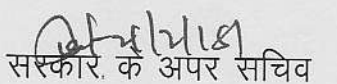 सरकार. के अपर सचिव